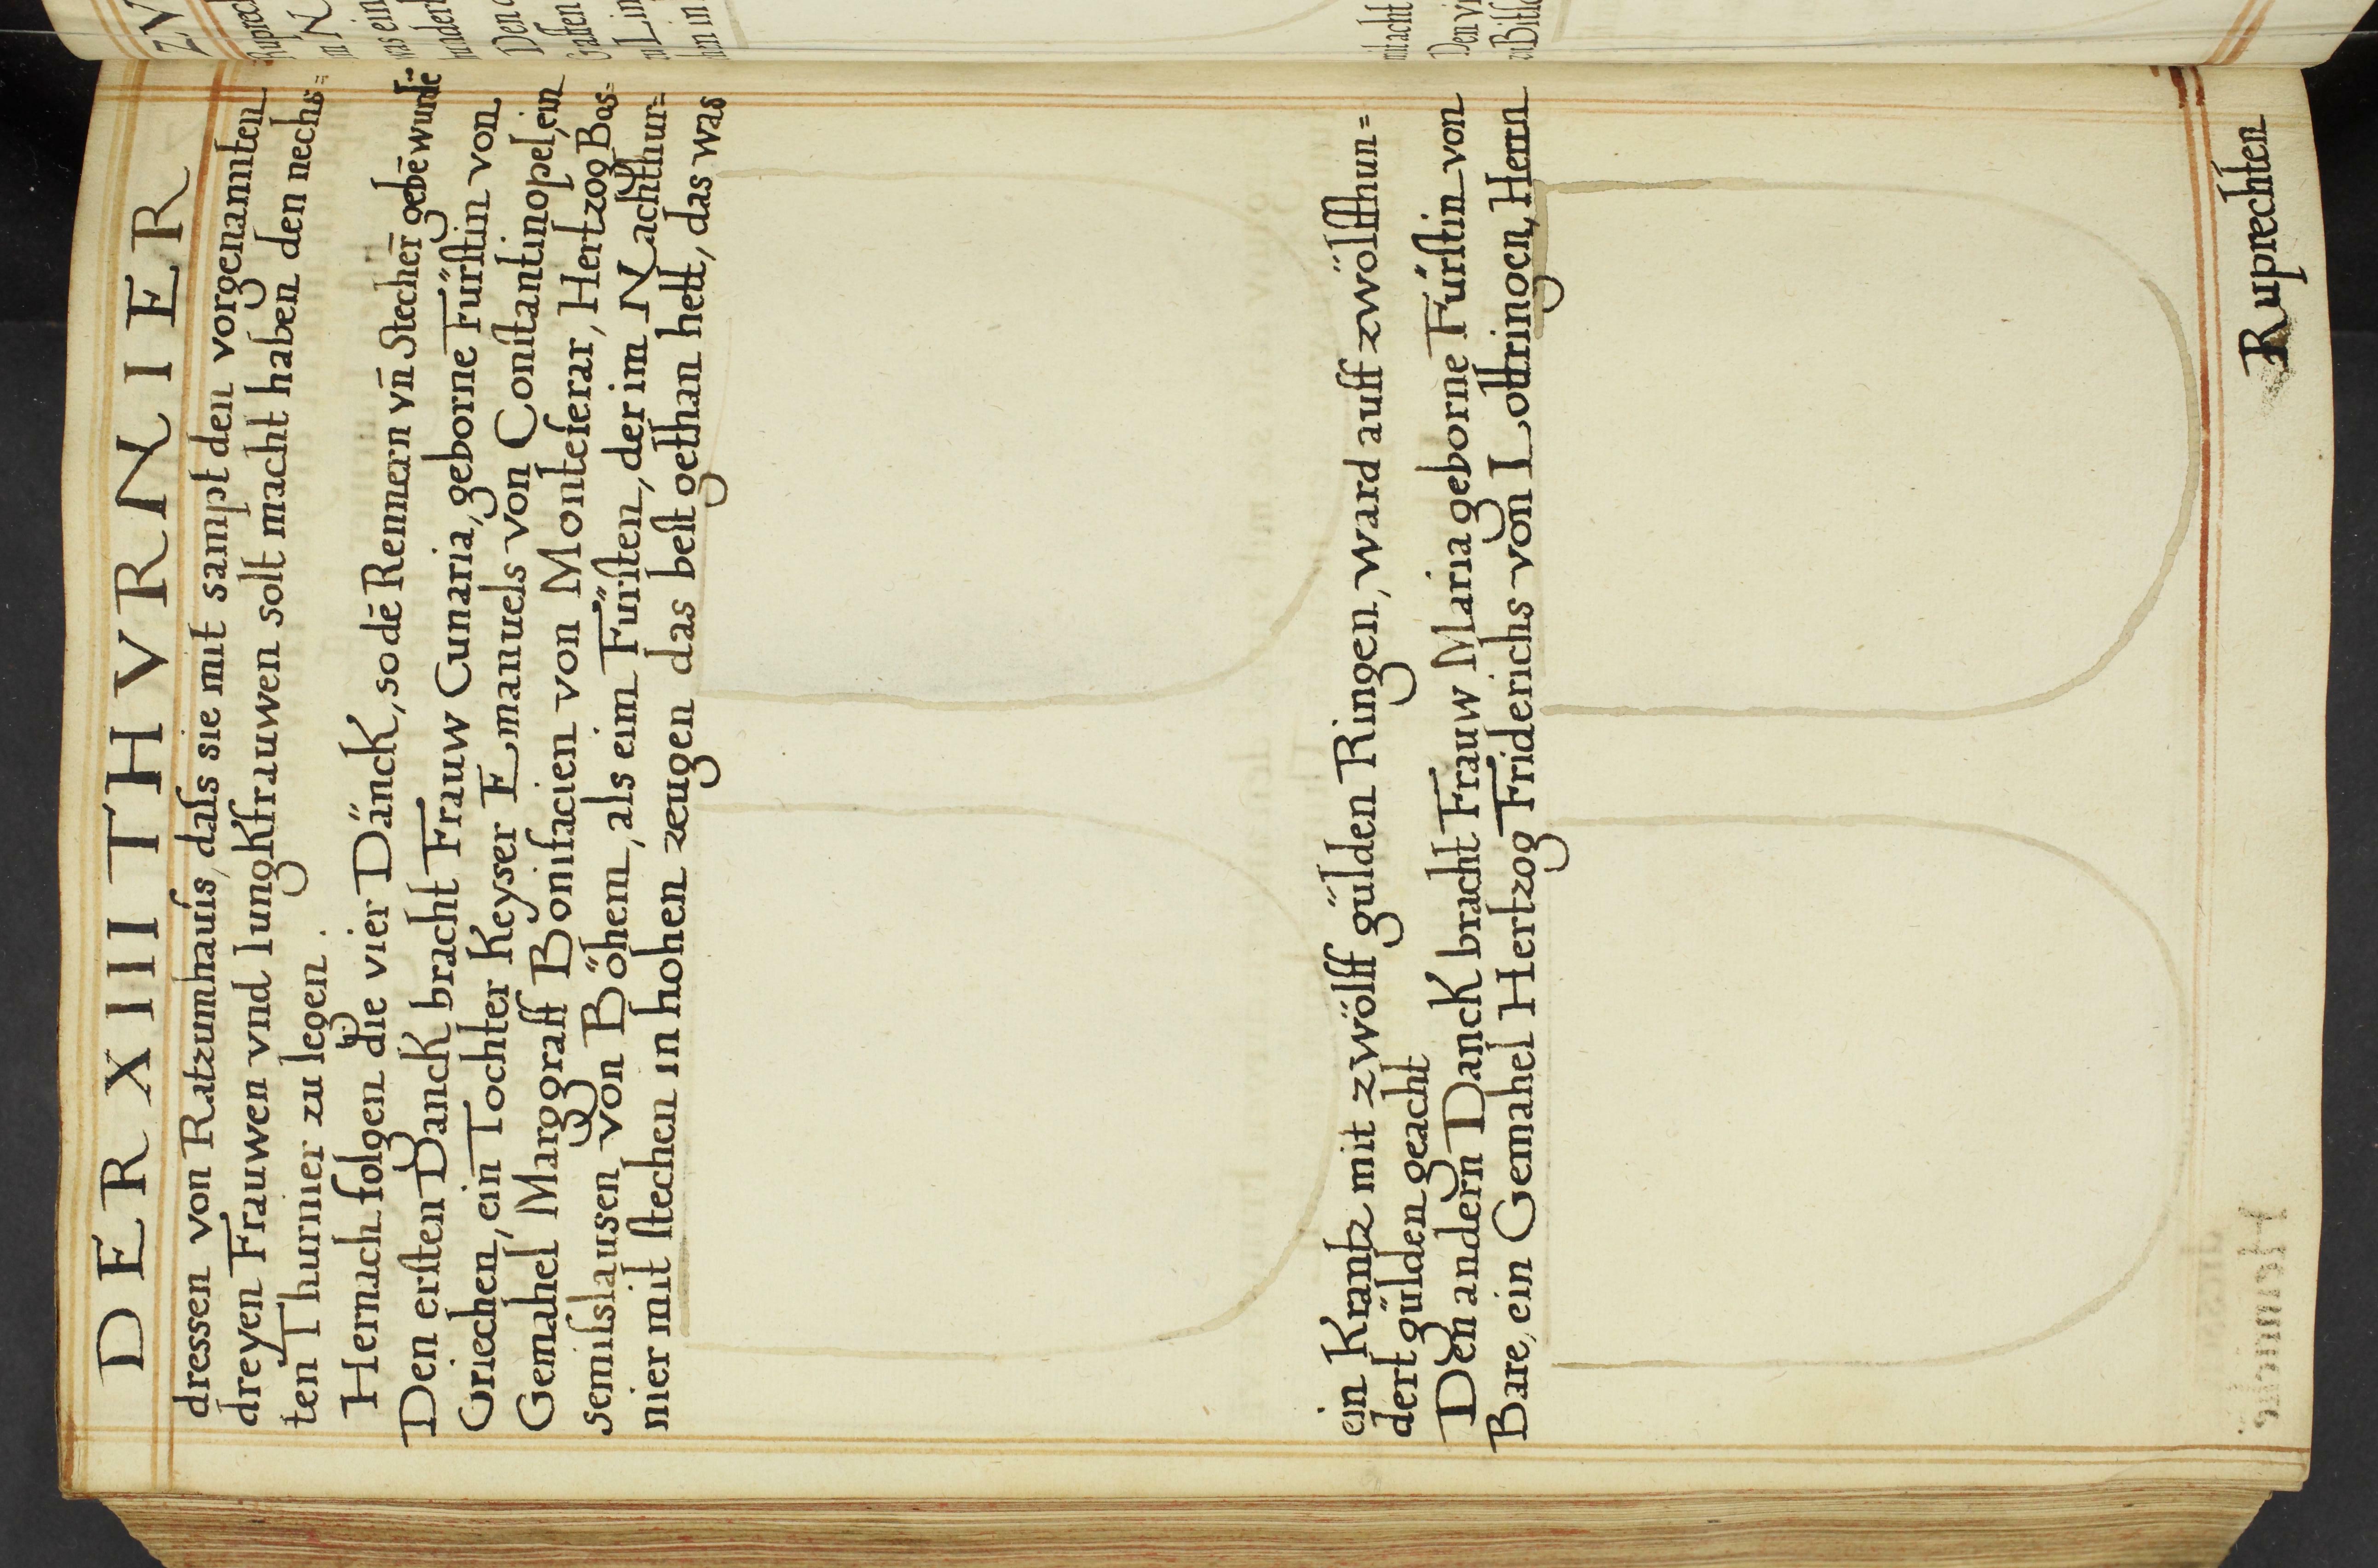 DER XIII THVRNIER
dressen von Ratzumhauſs, daſs sie mit sampt den vorgenannten
dreyen Frauwen vnd Iungkfrauwen solt macht haben den nechs=
ten Thurnier zu legen.
Hernach folgen die vier Dänck, so dē Rennern vn̄ Stecherr̄ gebē wurdē.
Den erſten Danck bracht Frauw Cunaria, geborne Fürſtin von
Griechen, ein Tochter Keyser Emanuels von Conſtantinopel, ein
Gemahel Marggraff Bonifacien von Monteferar, Hertzog Bos=
semiſslausen von Böhem, als eim Fürſten, der im Nachthur=
nier mit ſtechen in hohen zeugen das beſt gethan hett, das was
ein Krantz mit zwölff gülden Ringen, ward auff zwölffhun=
dert gülden geacht
Den andern Danck bracht Frauw Maria geborne Fürſtin von
Bare, ein Gemahel Hertzog Friderichs von Lottringen, Herrn
Ruprechten
ZV
Ruprech
in N
was ein
hundert
Den
Graffen
zu Lin
hun in
mit acht
Den vi
zu Bitſc